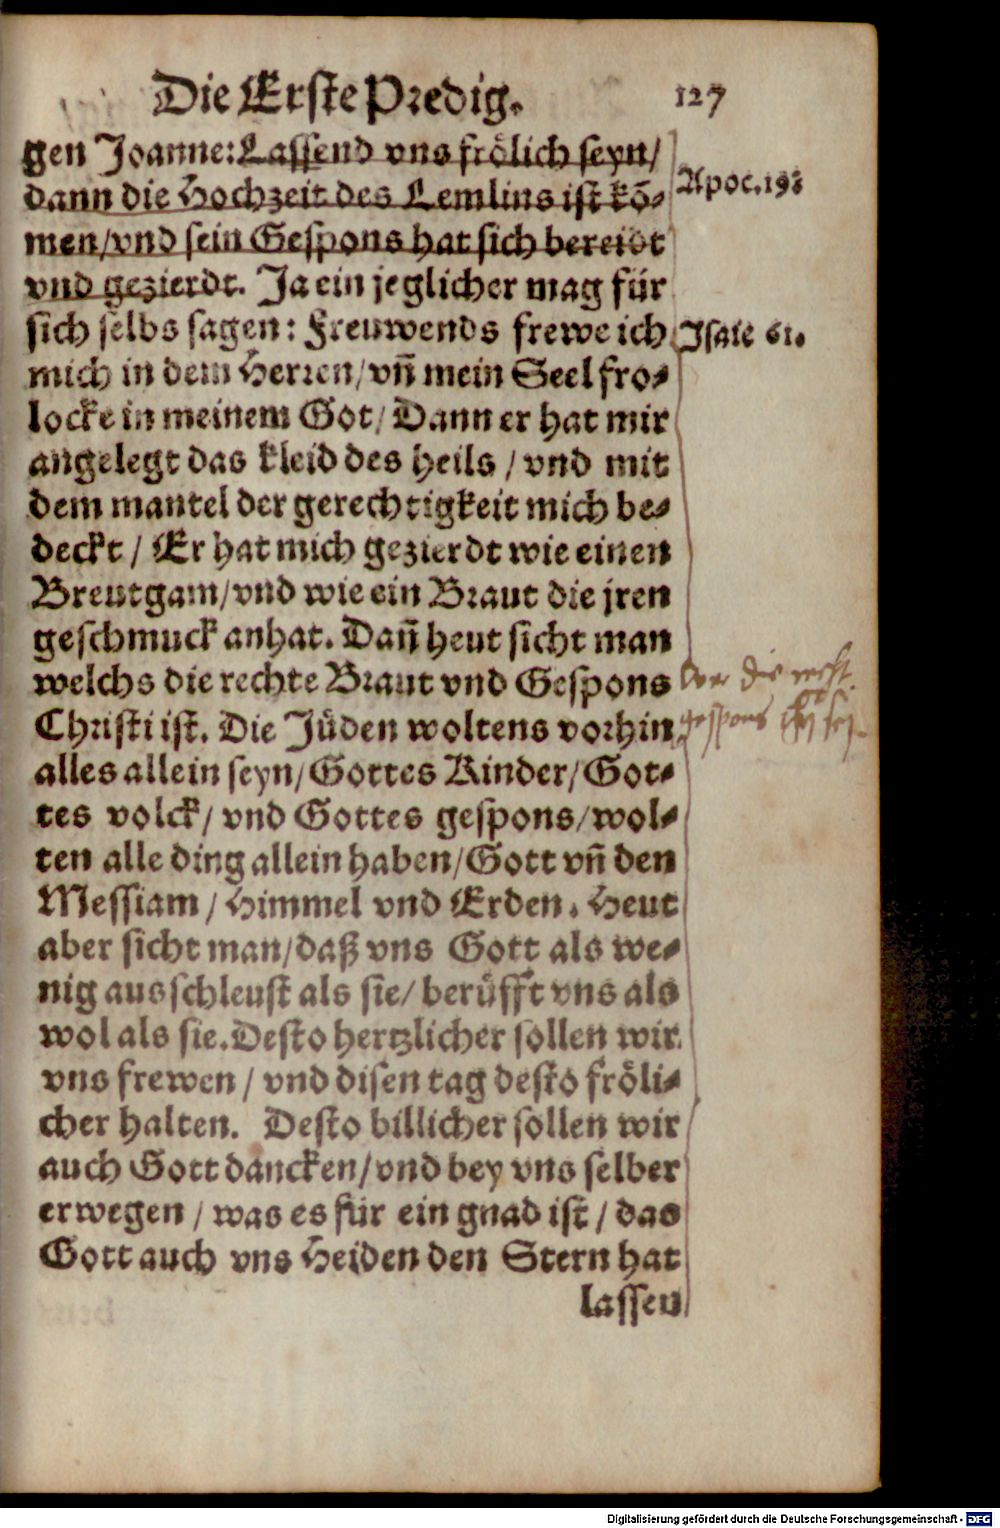 Die Erste Predig. 127
gen Joanne: Lassend vns frölich seyn/
dann die Hochzeit des Lemlins ist kõ-
Apoc. 19.
men/vnd sein Gespons hat sich bereidt
vnd gezierdt. Ja ein jeglicher mag für
sich selbs sagen: Freuwends frewe ich
Isaie 61.
mich in dem Herren/vñ mein Seel fro-
locke in meinem Got/Dann er hat mir
angelegt das kleid des heils / vnd mit
dem mantel der gerechtigkeit mich be-
deckt / Er hat mich gezierdt wie einen
Breutgam/vnd wie ein Braut die jren
geschmuck anhat. Dañ heut sicht man
welchs die rechte Braut vnd Gespons
Wer die recht
Christi ist. Die Jüden woltens vorhin
gespons
alles allein seyn/Gottes Kinder/Got-
tes volck/ vnd Gottes gespons/wol-
ten alle ding allein haben/Gott vñ den
Messiam / Himmel vnd Erden. Heut
aber sicht man/daß vns Gott als we-
nig ausschleust als sie/ berüfft vns als
wol als sie. Desto hertzlicher sollen wir
vns frewen / vnd disen tag desto fröli-
cher halten. Desto billicher sollen wir
auch Gott dancken/vnd bey vns selber
erwegen / was es für ein gnad ist / das
Gott auch vns Heiden den Stern hat
lassen
Digitalisierung gefördert durch die Deutsche Forschungsgemeinschaft - DFG